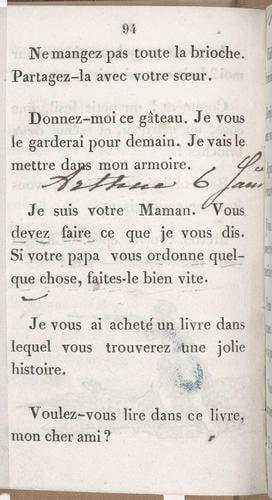 94
Ne mangez pas toute la brioche.
Partagez-la avec votre sœur.
Donnez-moi ce gâteau. Je vous
le garderai pour demain. Je vais le
mettre dans mon armoire.
Arthur 6
Je suis votre Maman. Vous
devez faire ce que je vous dis.
Si votre papa vous ordonne quel-
que chose, faites-le bien vite.
Je vous ai acheté un livre dans
lequel vous trouverez une jolie
histoire.
Voulez-vous lire dans ce livre,
mon cher ami ?